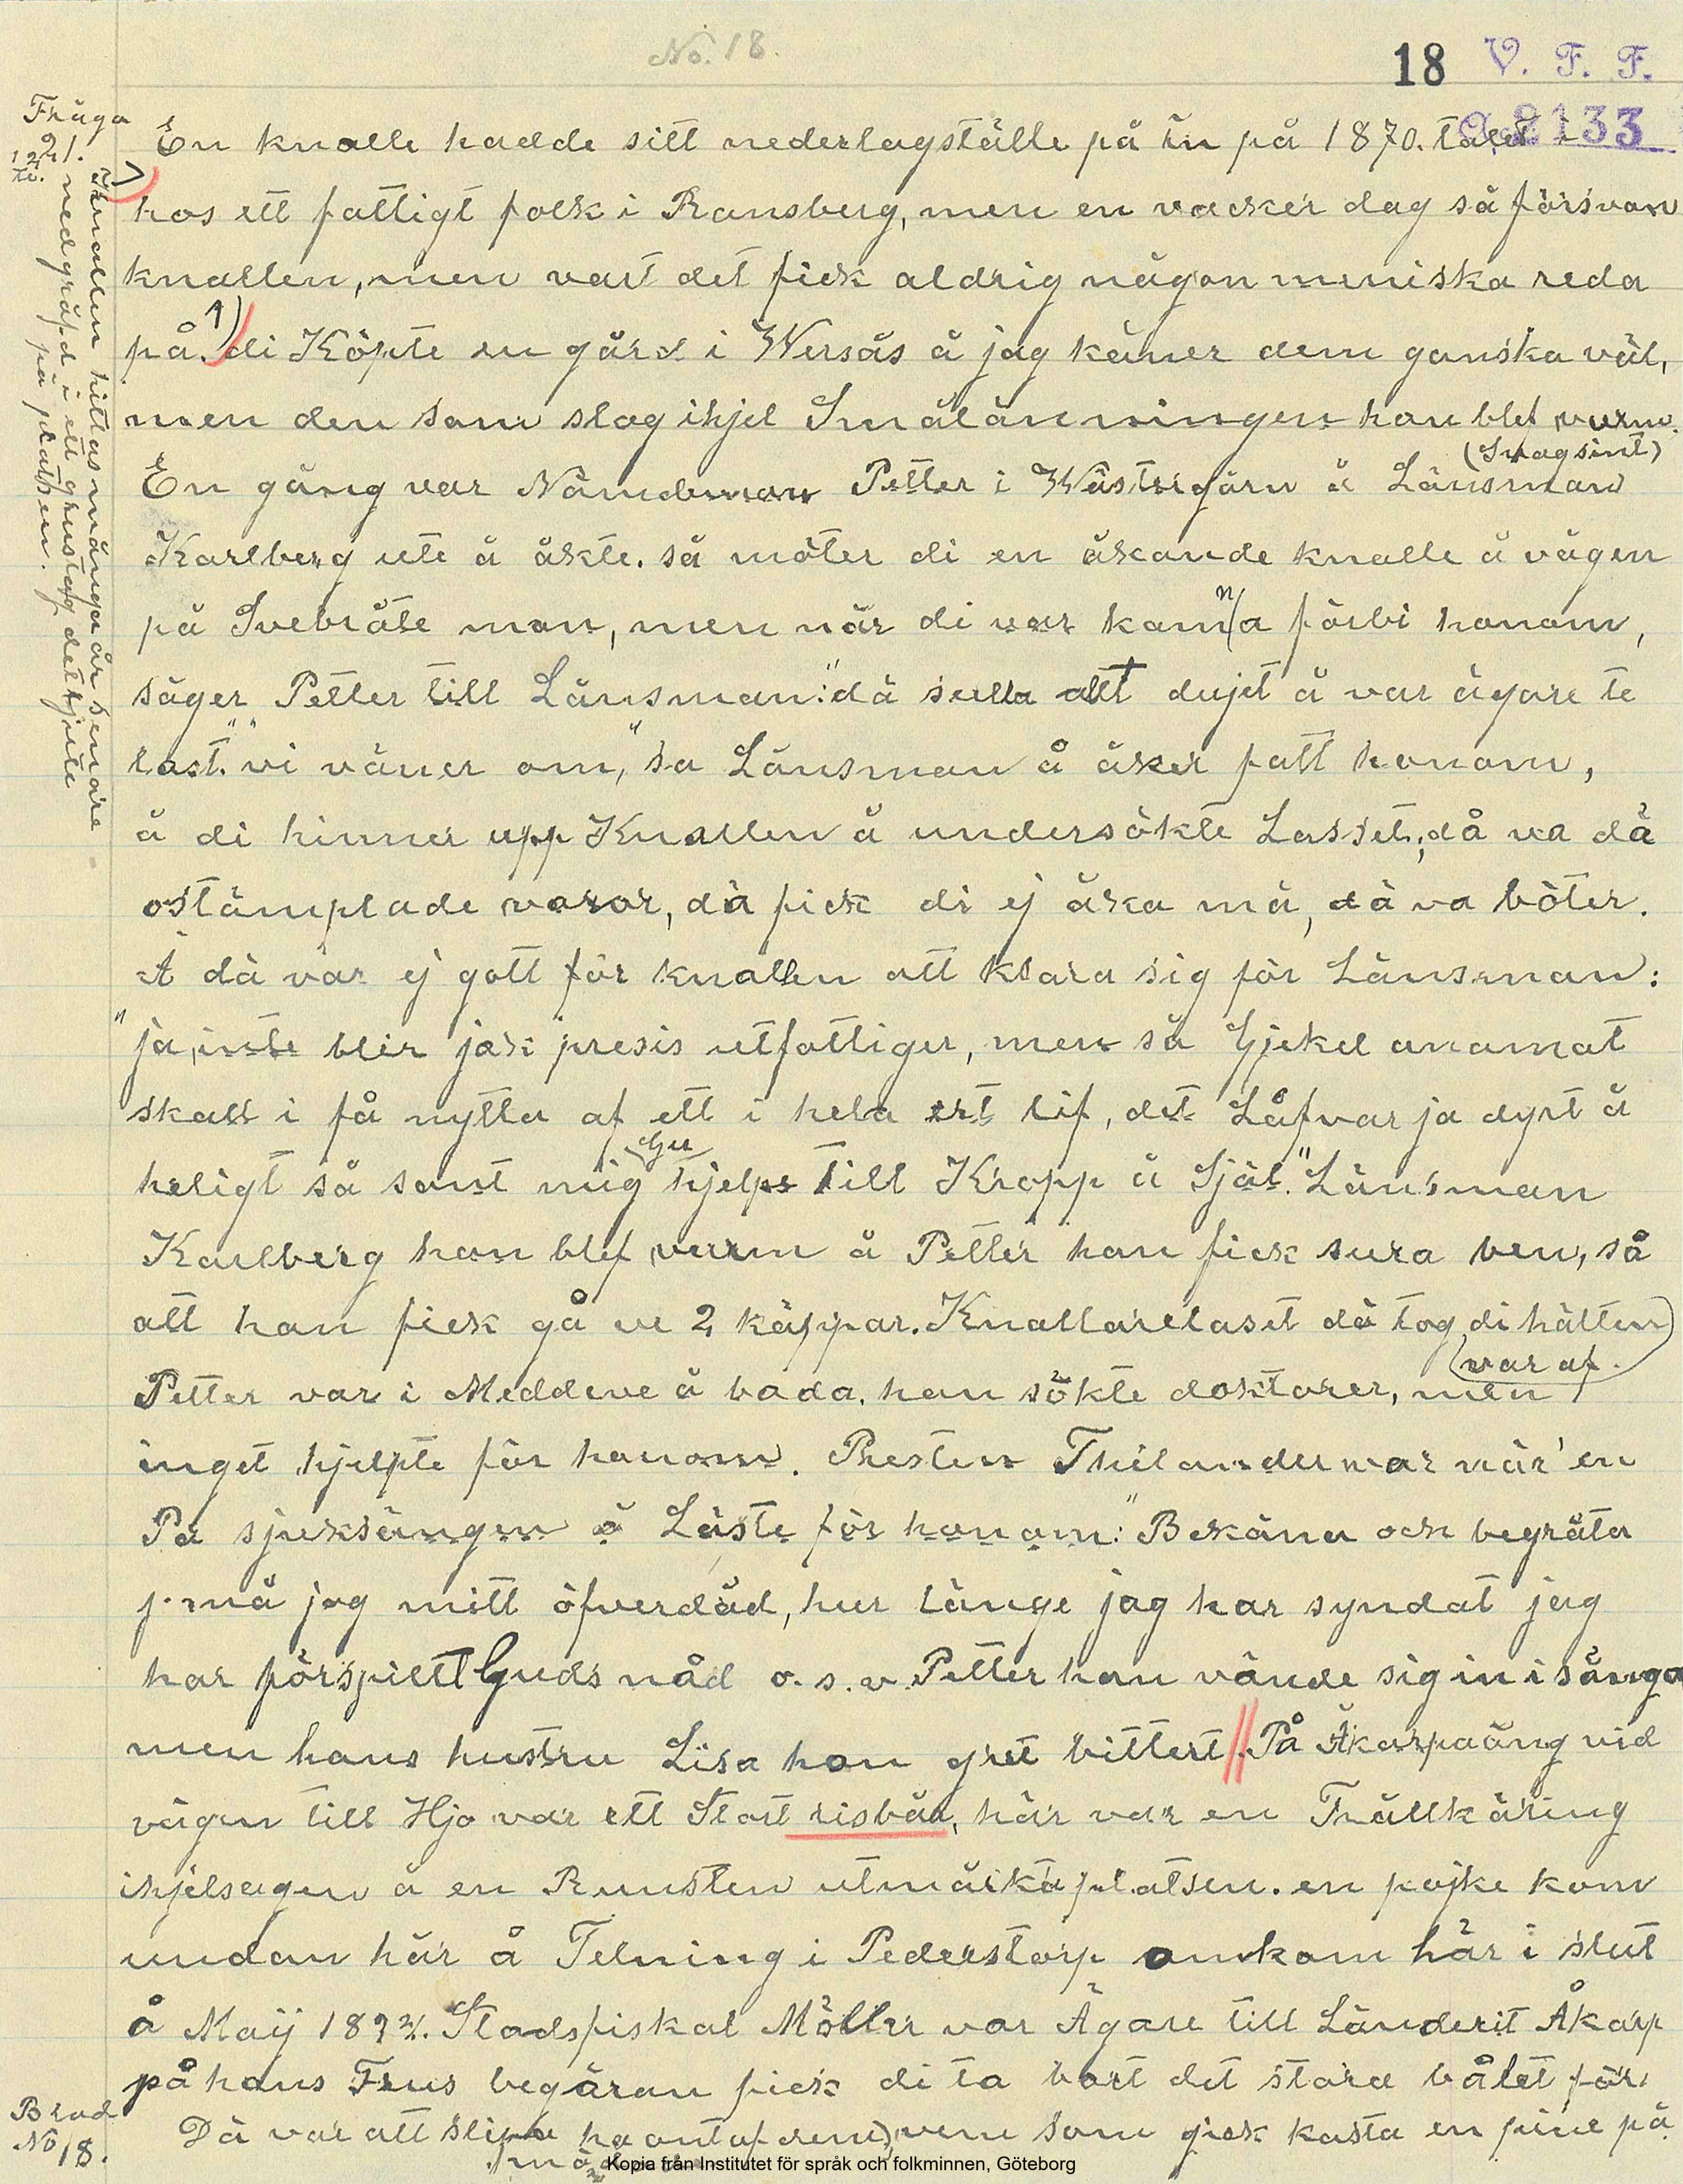 No. 18.
18 V. F. F.
2133
Fråga
21.
En knalle hadde sitt nederlagställe på en på 1870. talet i
hos ett fattigt folk i Ransberg, men en vacker dag så försvan
knallen, men vart det fick aldrig någon meniska reda
på. 1) di Köpte en gård i Wersås å jag käner dem ganska väl,
men den som slog ihjel Smålänningen han blef vurm.
(Svagsint)
En gång var Nämdeman Petter i Wästrigårn å Länsman
Karlberg ute å åkte. så möter di en åkande knalle å vägen
på Svebråte mon, men när di var komna förbi honom,
säger Petter till Länsman: "dä sulla allt dujet å var ägare te
last." "vi väner om," sa Länsman å åker fatt honom,
å di hinner upp Knallen å undersökte Lasset; då va dä
ostämplade varor, dä fick di ej åka mä, dä va böter.
Å dä var ej gott för knallen att klara sig för Länsman:
"ja, inte blir jak presis utfattiger, men så Gjekel anamat
skall i få nytta af ett i hela ert lif, det Låfvar ja dyrt å
heligt så sant mig Gu hjelpe till Kropp å Själ." Länsman
Karlberg han blef vurm å Petter han fick sura ben, så
att han fick gå ve 2 käppar. Knallarelaset dä tog di hälten
var af.
Petter var i Meddeve å bada. han sökte doktorer, men
inget hjelpte för honom. Presten Thilander var när en
På sjuksängen å Läste för honom: "Bekäna och begråta
j. må jag mitt öfverdåd, hur länge jag har syndat jag
har förspillt Guds nåd o. s. v. Petter han vände sig in i sänga
men hans hustru Lisa hon gret bittert. // På Åkarpaäng vid
vägen till Hjo var ett Stort risbål, här var en Trällkäring
ihjelsagen å en Runsten utmärkta platsen. en pojke kom
undan här å Telning i Pederstorp omkom här i slut
å Maij 1892. Stadsfiskal Möller var Ägare till Länderit Åkarp
på hans Frus begäran fick di ta bort det stora bålet för.
Dä var att slipa ha ont af dem, vem som gick kasta en pine på
1) Knallen hittas många år senare
nedgräfd i ett grustag det tjute
på platsen.
Brad
No 18.
Kopia från Institutet för språk och folkminnen, Göteborg